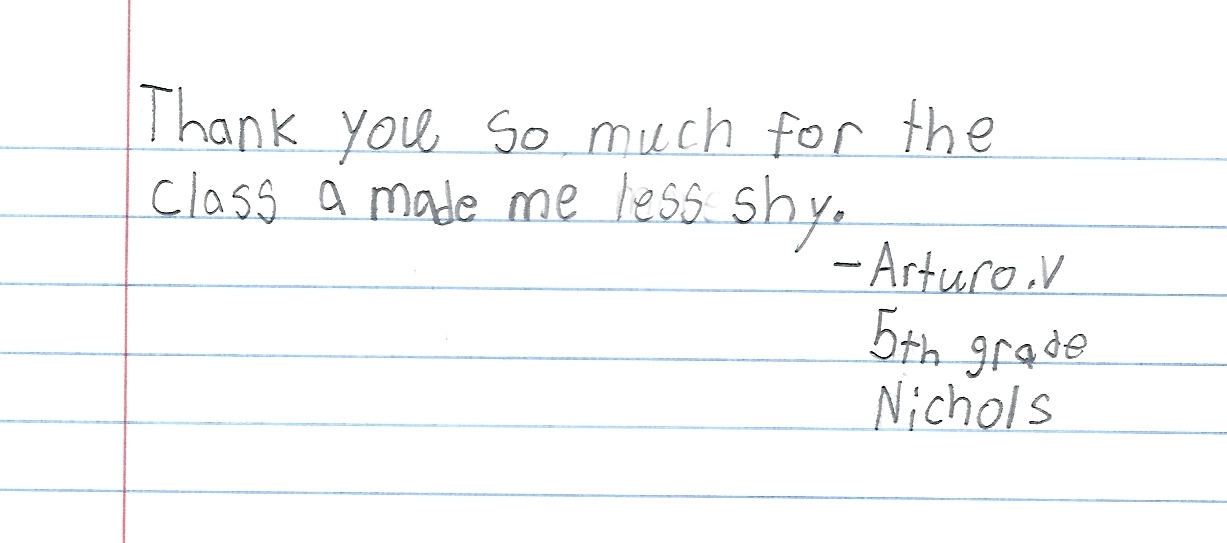 Thank you so much for the
class a made me less shy.
-Arturo.V
5th grade
Nichols